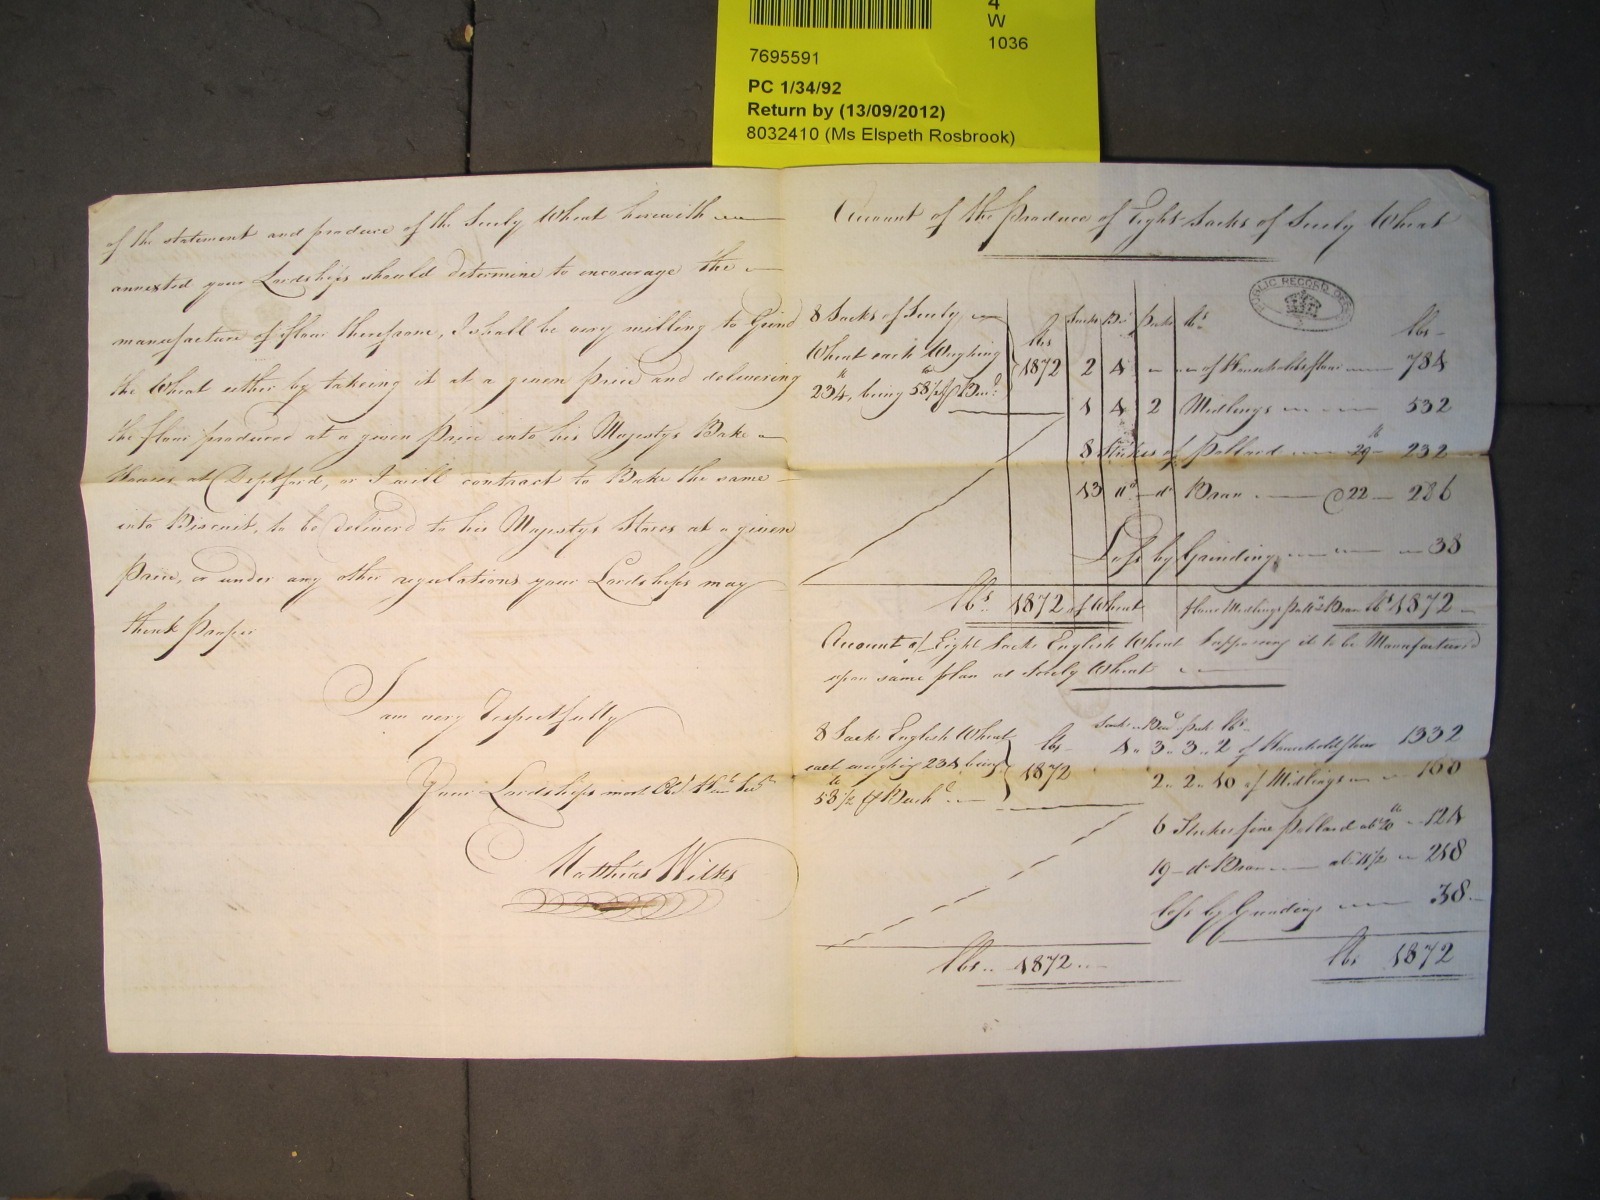 4
W
1036
7695591
PC 1/34/92
Return by (13/09/2012)
8032410 (Ms Elspeth Rosbrook)
of the statement and produce of the Sicily Wheat herewith
annexted your Lordships should determine to encourage the
manufacture of flour therefrom, I shall be very willing to Grind
the Wheat either by takeing it at a given price and delivering
the flour produced at a given Price into his Majestys Bake
Houses at Deptford, or I will contract to Bake the same
into Biscuit, to be deliverd to his Majestys Stores at a given
Price, or under any other regulations your Lordships may
think Proper
I am very Respectfully
Your Lordships most Obt Hum Sert
Matthias Wilks
Account of the Produce of Eight Sacks of Sicily Wheat
PUBLIC RECORD OFFICE
8 Sacks of Sicily
Wheat each Weighing
234 lb, being 58 1/2 lb
lbs
1872
Sacks Bu Peks lbs lbs
2 4 - - of Households flour 784
1 4 2 Midlings 532
8 Strikes of Pollard 29 lb 232
13 do Bran @ 22 286
Loss by Grinding 38
lbs 1872 of Wheat flour Midlings Polld Bran lbs 1872
Account of Eight Sacks English Wheat Supposing it to be Manufactured
upon same plan as Sicily Wheat
8 Sacks English Wheat
each weighing 234 being
58 1/2 lb
lbs
1872
Sacks Bu Pek lbs
4 3 3 2 of Household flour 1332
2 2 10 of Midlings 160
6 Strikes fine Pollard at 20 lb 124
19 do Bran at 11 1/2 218
loss by Grinding 38
lbs 1872
lbs 1872